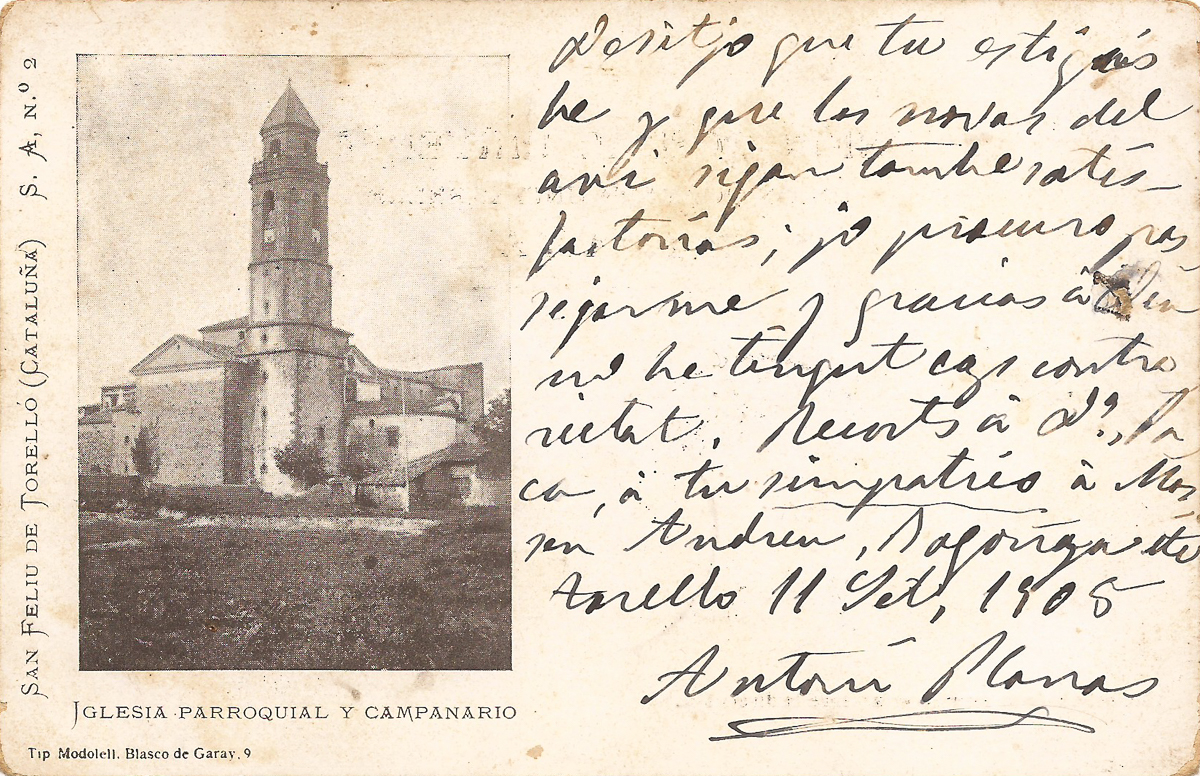 SAN FELIU DE TORELLÓ (CATALUÑA) S. A, N.º 2
IGLESIA PARROQUIAL Y CAMPANARIO
Tip Modolell. Blasco de Garay, 9
Desitjo que tu estiguis
be y que las novas del
avi sigan tambe satis-
factorias; jo procuro pas
sejarme y gracias à Deu
no he tingut cap contra
rietat. Recorts à Dª,
à tu simpatíes à Mos
sen Andreu,
Torelló 11 Set, 1905
Antoni Planas